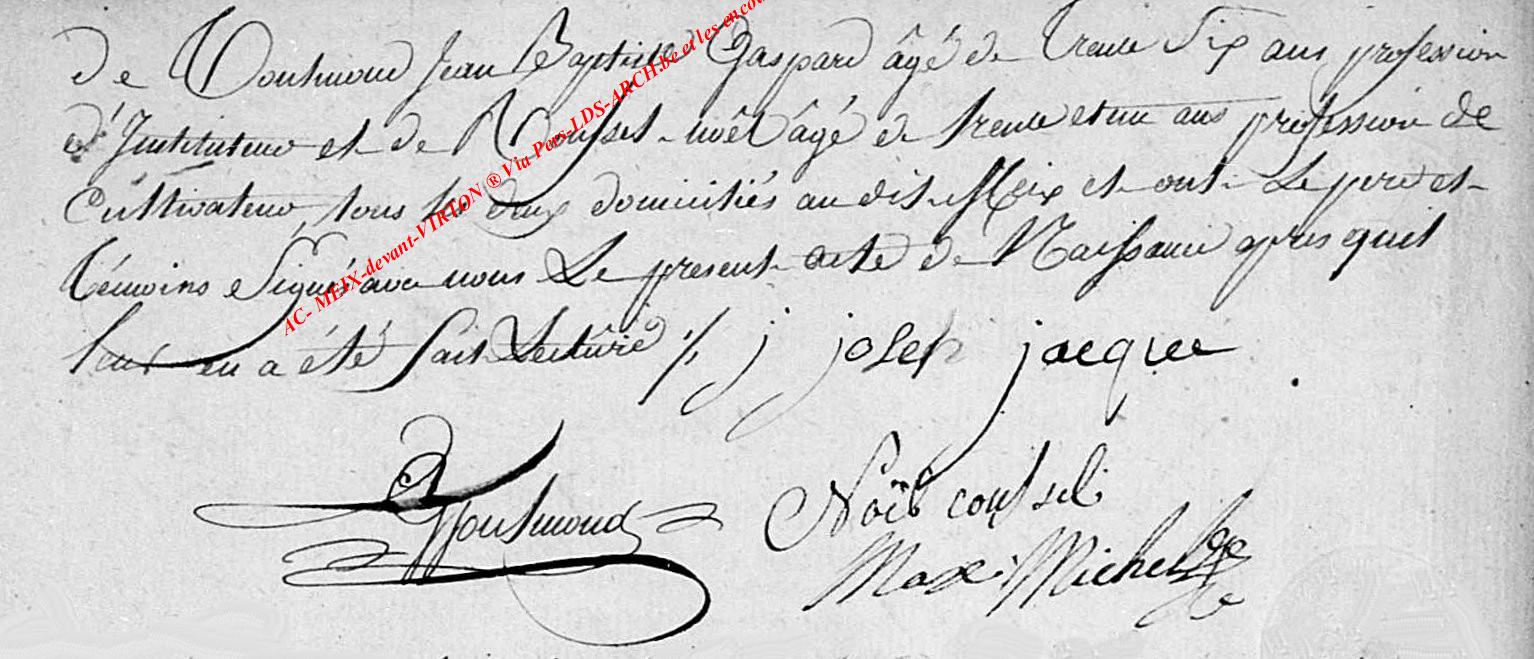 de Jean Baptiste Gaspard âgé de trente Six ans profession
d'Instituteur et de noël âgé de trente et un ans profession de
Cultivateur, tous les deux domiciliés au dit Meix et ont Le pere et
témoins Signé avec nous Le present acte de Naissance apres quil
leur en a été fait Lecture ·/. j joseph jacque
Noël
Max: Michel
AC- MEIX-devant-VIRTON ® Via Pers-LDS-ARCH.be et les